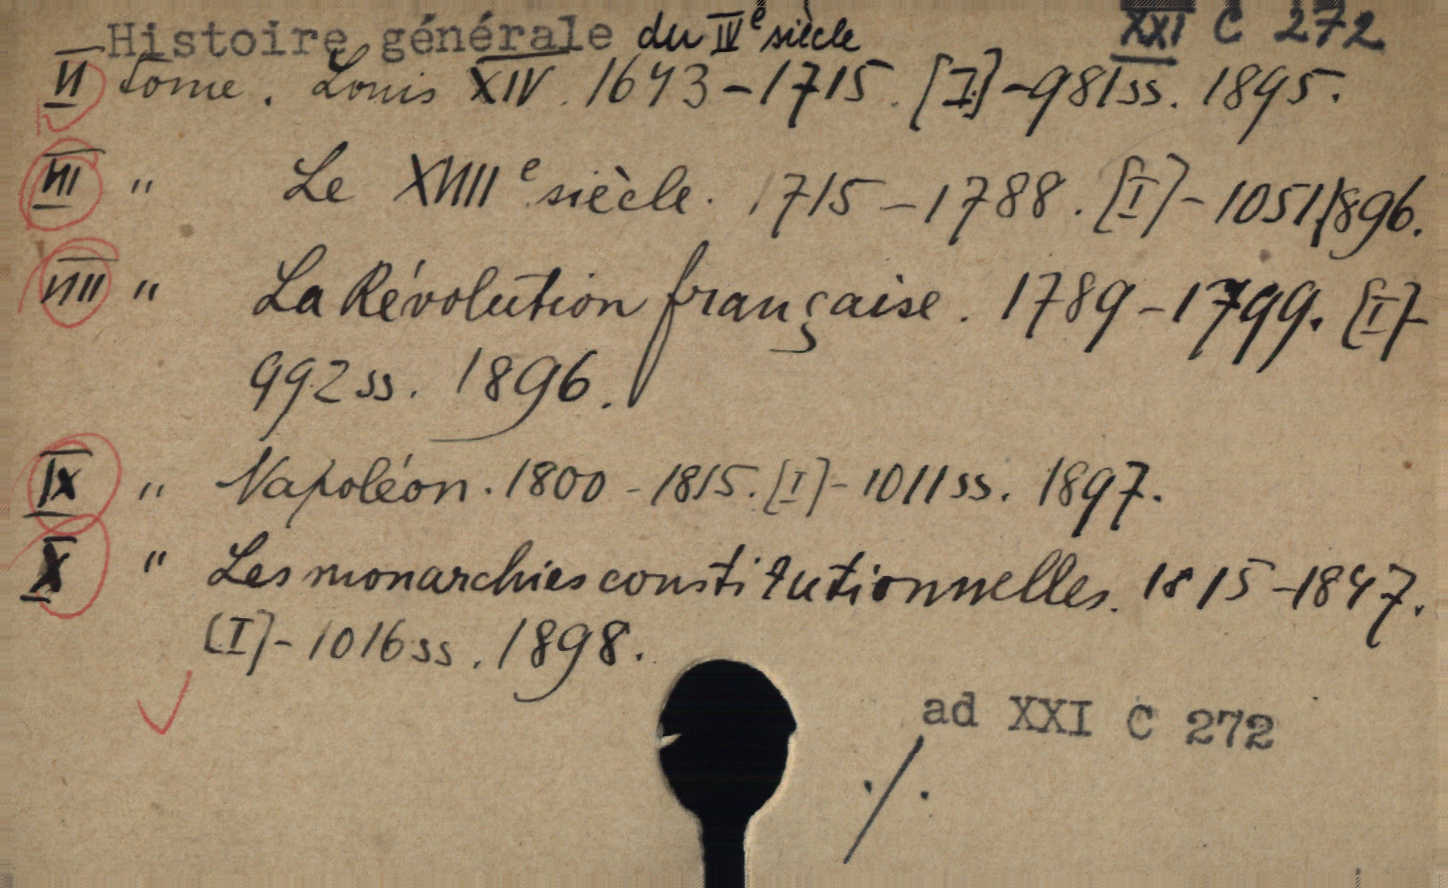 Histoire générale du IVe siècle XXI C 272
VI tome. Louis XIV. 1643-1715. [I]-981ss. 1895.
VII " Le XVIIIe siècle. 1715-1788. [I]-1051. 1896.
VIII " La Révolution française. 1789-1799. [I]-
992ss. 1896.
IX " Napoléon. 1800-1815. [I]-1011ss. 1897.
X " Les monarchies constitutionnelles. 1815-1847.
[I]-1016ss. 1898.
ad XXI C 272
./.